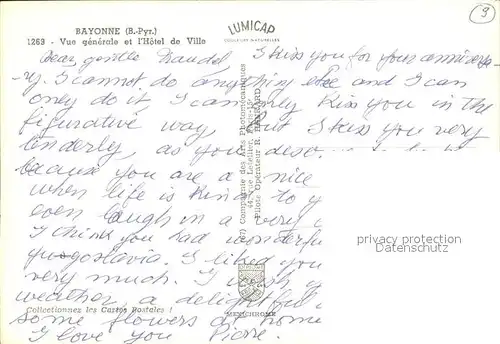 BAYONNE (B.-Pyr.)
1269 - Vue générale et l'Hôtel de Ville
LUMICAP
COULEURS NATURELLES
9
Dear gentle I kiss you for your anniversa-
ry. I cannot do anything else and I can
only do it. I can only kiss you in the
figurative way, but I kiss you very
tenderly as you
because you are a nice
when life is kind to y
even laugh in a very
I think you had wonderfu
yugoslavia. I liked you
very much. I wish y
weather, a delightful
some flowers at home
I love you Pierre.
(67) Compagnie des Arts Photomécaniques
44, rue Letellier, Paris-15e
Pilote Opérateur R. HENRARD
privacy protection
Datenschutz
Collectionnez les Cartes Postales !
MEXICHROME